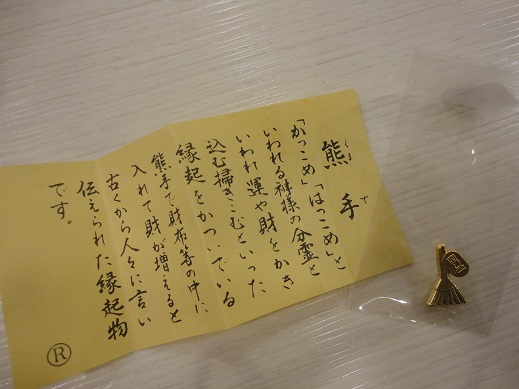 熊手
くまで
「かっこめ」「はっこめ」と
いわれる神様の分霊と
いわれ運や財とかき
込む掃きこむといった
縁起をかついでいる
熊手で財布等の中に
入れて財が増えると
古くから人々に言い
伝えられた縁起物
です。
R